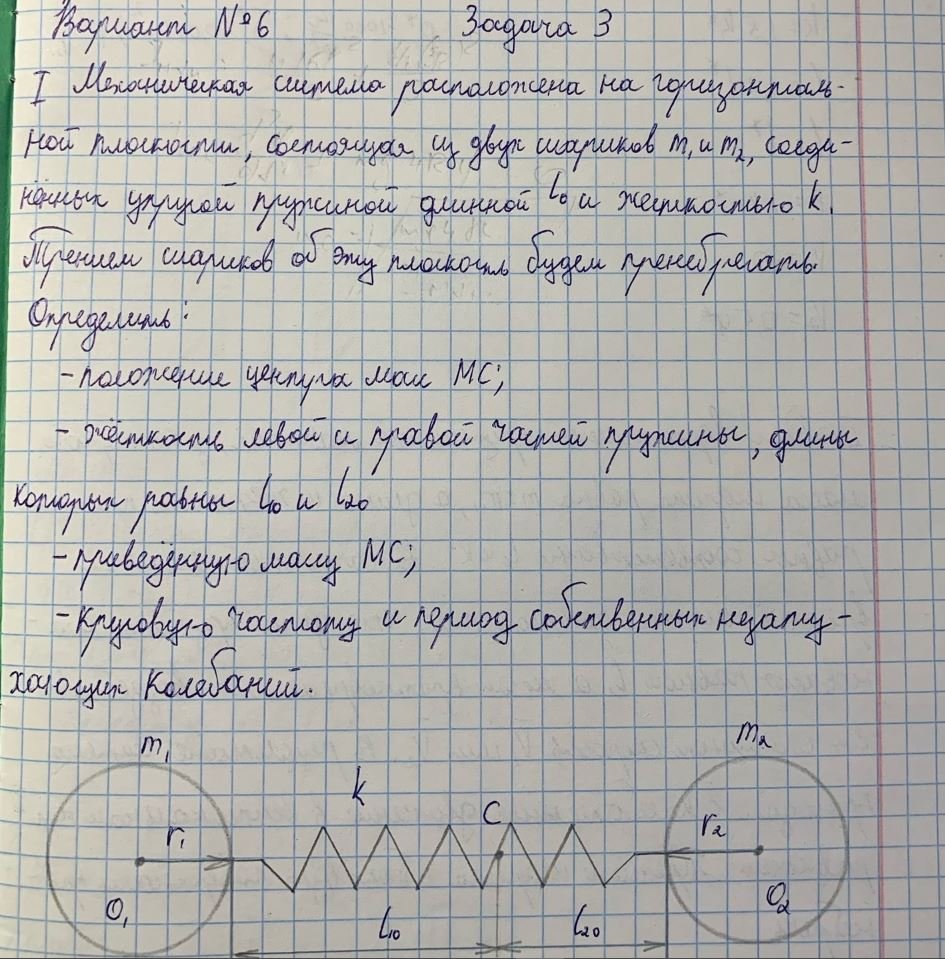 Вариант №6 Задача 3
I Механическая система расположена на горизонталь-
ной плоскости, состоящая из двух шариков m₁ и m₂, соеди-
нённых упругой пружиной длинной l₀ и жёсткостью k.
Трением шариков об эту плоскость будем пренебрегать.
Определить:
- положение центра масс МС;
- жёсткость левой и правой частей пружины, длины
которых равны l₁₀ и l₂₀
- приведённую массу МС;
- Круговую частоту и период собственных незату-
хающих колебаний.
m₁ m₂
k C
r₁ r₂
O₁ O₂
l₁₀ l₂₀